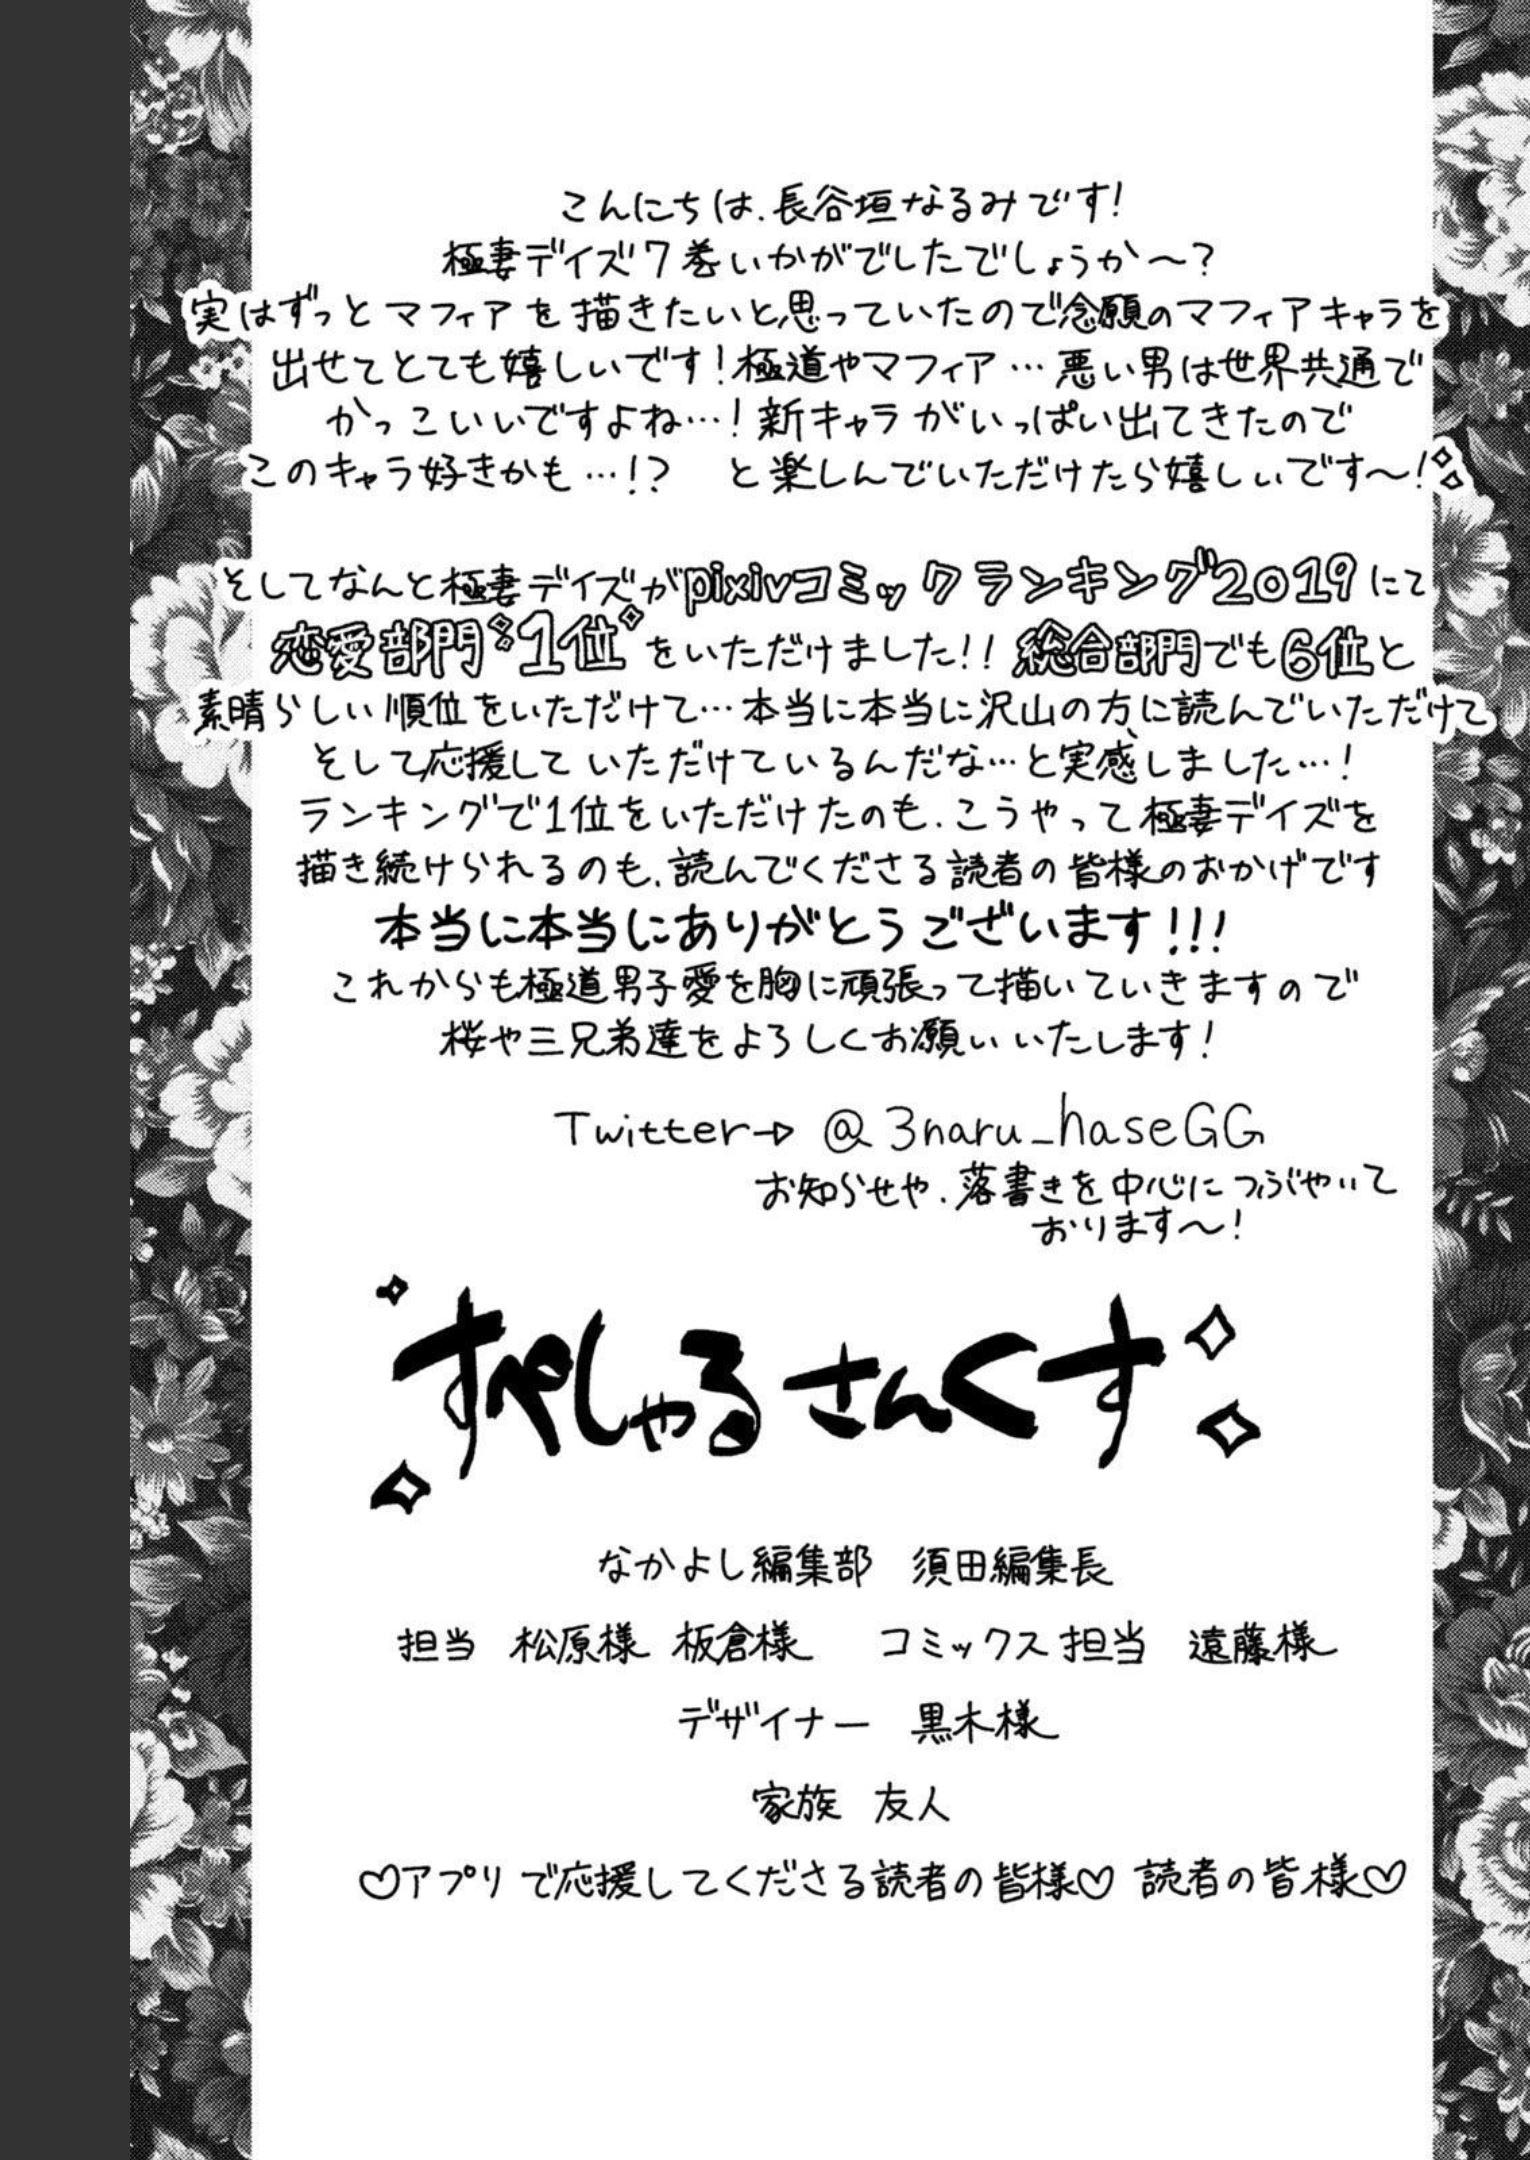 こんにちは、長谷垣なるみです!
極妻デイズ7巻いかがでしたでしょうか〜?
実はずっとマフィアを描きたいと思っていたので念願のマフィアキャラを
出せてとても嬉しいです!極道やマフィア…悪い男は世界共通で
かっこいいですよね…!新キャラがいっぱい出てきたので
このキャラ好きかも…!? と楽しんでいただけたら嬉しいです〜!
そしてなんと極妻デイズがpixivコミックランキング2019にて
恋愛部門1位をいただけました!!総合部門でも6位と
素晴らしい順位をいただけて…本当に本当に沢山の方に読んでいただけて、
そして応援していただけているんだな…と実感しました…!
ランキングで1位をいただけたのも、こうやって極妻デイズを
描き続けられるのも、読んでくださる読者の皆様のおかげです
本当に本当にありがとうございます!!!
これからも極道男子愛を胸に頑張って描いていきますので
桜や三兄弟達をよろしくお願いいたします!
Twitter→ @3naru_haseGG
お知らせや、落書きを中心につぶやいて
おります〜!
すぺしゃるさんくす
なかよし編集部 須田編集長
担当 松原様 板倉様 コミックス担当 遠藤様
デザイナー 黒木様
家族 友人
♡アプリで応援してくださる読者の皆様♡ 読者の皆様♡